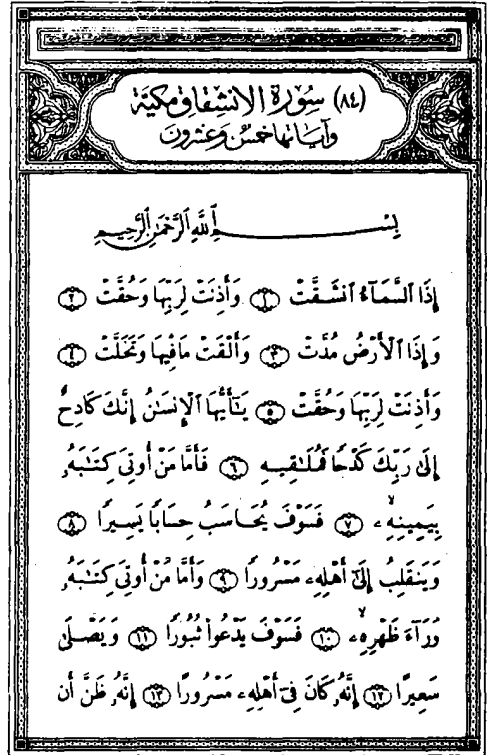 (٨٤) سُورَة الانشِقَاق مَكيَّة
وآيَاتهَا خَمسٌ وَعشرُونَ
بِسْــــمِ ٱللَّهِ ٱلرَّحْمَٰنِ ٱلرَّحِيمِ
إِذَا ٱلسَّمَآءُ ٱنشَقَّتْ ١ وَأَذِنَتْ لِرَبِّهَا وَحُقَّتْ ٢
وَإِذَا ٱلْأَرْضُ مُدَّتْ ٣ وَأَلْقَتْ مَا فِيهَا وَتَخَلَّتْ ٤
وَأَذِنَتْ لِرَبِّهَا وَحُقَّتْ ٥ يَٰٓأَيُّهَا ٱلْإِنسَٰنُ إِنَّكَ كَادِحٌ
إِلَىٰ رَبِّكَ كَدْحًا فَمُلَٰقِيهِ ٦ فَأَمَّا مَنْ أُوتِىَ كِتَٰبَهُۥ
بِيَمِينِهِۦ ٧ فَسَوْفَ يُحَاسَبُ حِسَابًا يَسِيرًا ٨
وَيَنقَلِبُ إِلَىٰٓ أَهْلِهِۦ مَسْرُورًا ٩ وَأَمَّا مَنْ أُوتِىَ كِتَٰبَهُۥ
وَرَآءَ ظَهْرِهِۦ ١٠ فَسَوْفَ يَدْعُواْ ثُبُورًا ١١ وَيَصْلَىٰ
سَعِيرًا ١٢ إِنَّهُۥ كَانَ فِىٓ أَهْلِهِۦ مَسْرُورًا ١٣ إِنَّهُۥ ظَنَّ أَن